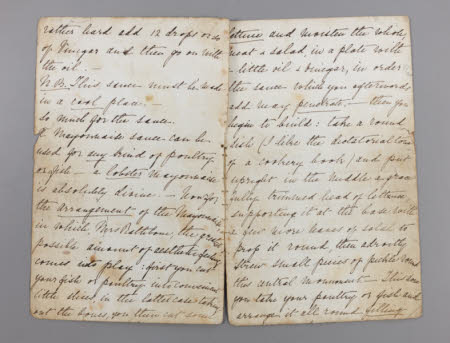 rather hard add 12 drops or so
of Vinegar and then go on with
the oil. —
N.B. This sauce must be made
in a cool place. —
So much for the sauce.
A Mayonnaise sauce can be
used for any kind of poultry
or fish — a lobster Mayonnaise
is absolutely divine — Now for
the arrangement of the Mayonnaise
in which, Mrs Rathbone, the greatest
possible amount of aesthetic feeling
comes into play: first you cut
your fish or poultry into convenient
little dice, in the latter case taking
out the bones, you then cut some
lettuce and moisten the whole,
meat & salad, in a plate with
a little oil & vinegar, in order
the sauce which you afterwards
add may penetrate, — then you
begin to build: take a round
dish (I like the dictatorial tone
of a cookery book) and put
upright in the middle a grace
fully trimmed head of lettuce
supporting it at the base with
a few more leaves of salad to
prop it round, then adroitly
strew small pieces of pickle round
this central monument — This done
you take your poultry or fish and
arrange it all round filling